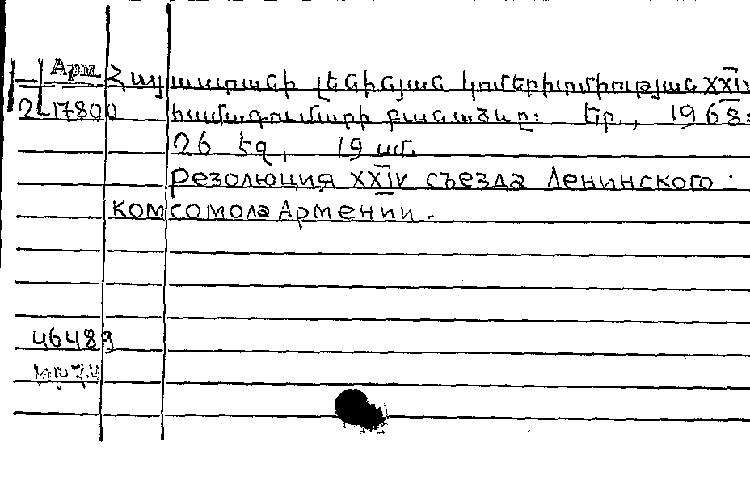 Арм. Հայաստանի լենինյան կոմերիտմիության XXIV
2-17800 համագումարի բանաձևը: Եր., 1968:
26 էջ, 19 սմ.
Резолюция XXIV съезда Ленинского
комсомола Армении.
46489